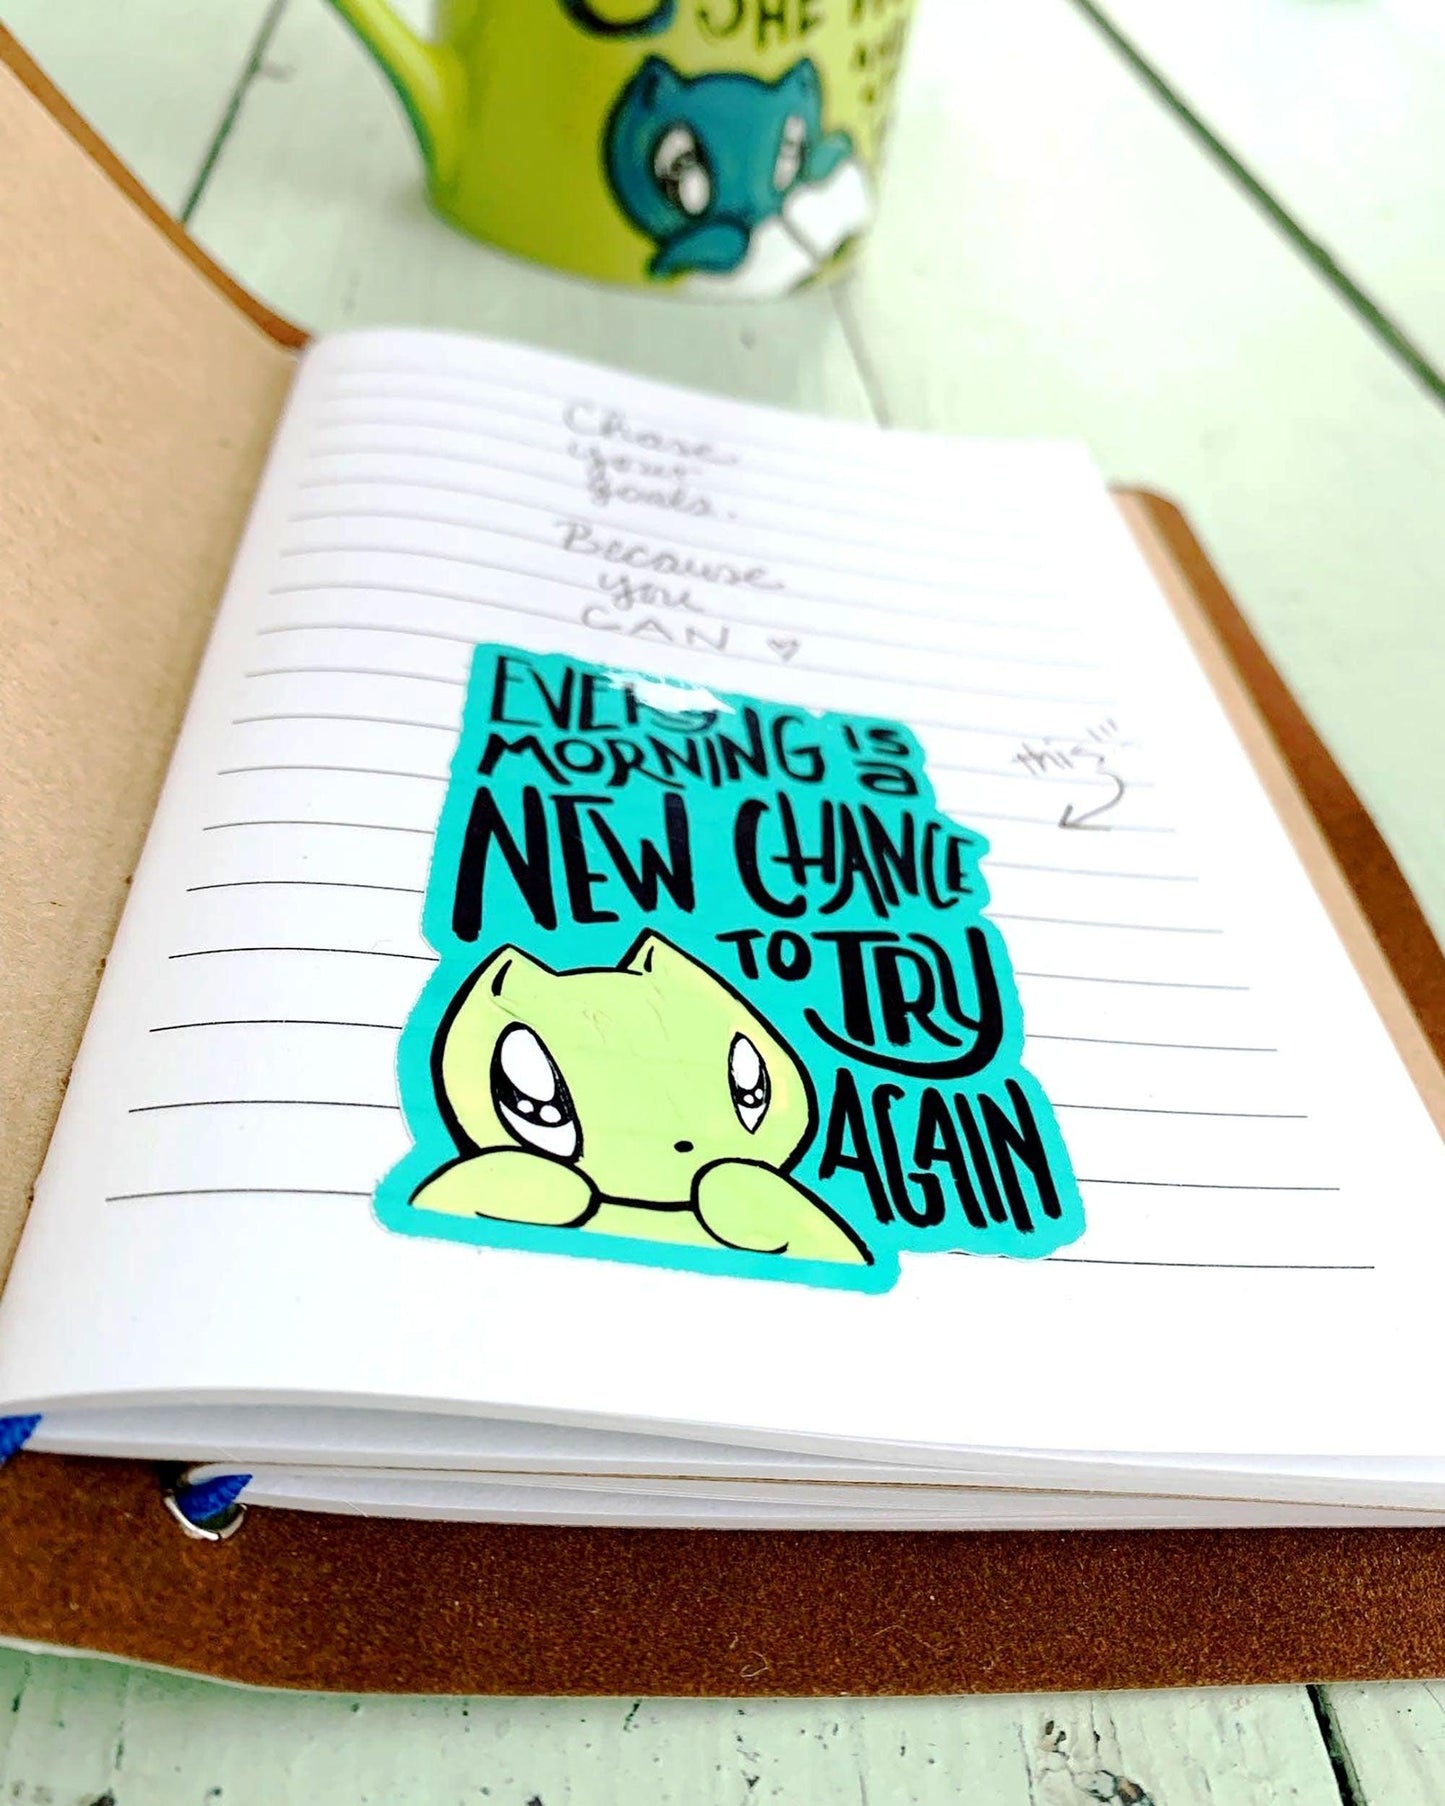 SHE
Chase
your
goals.
Because
you
CAN ♡
this!!!
EVERY
MORNING IS
a
NEW CHANCE
TO TRY
AGAIN